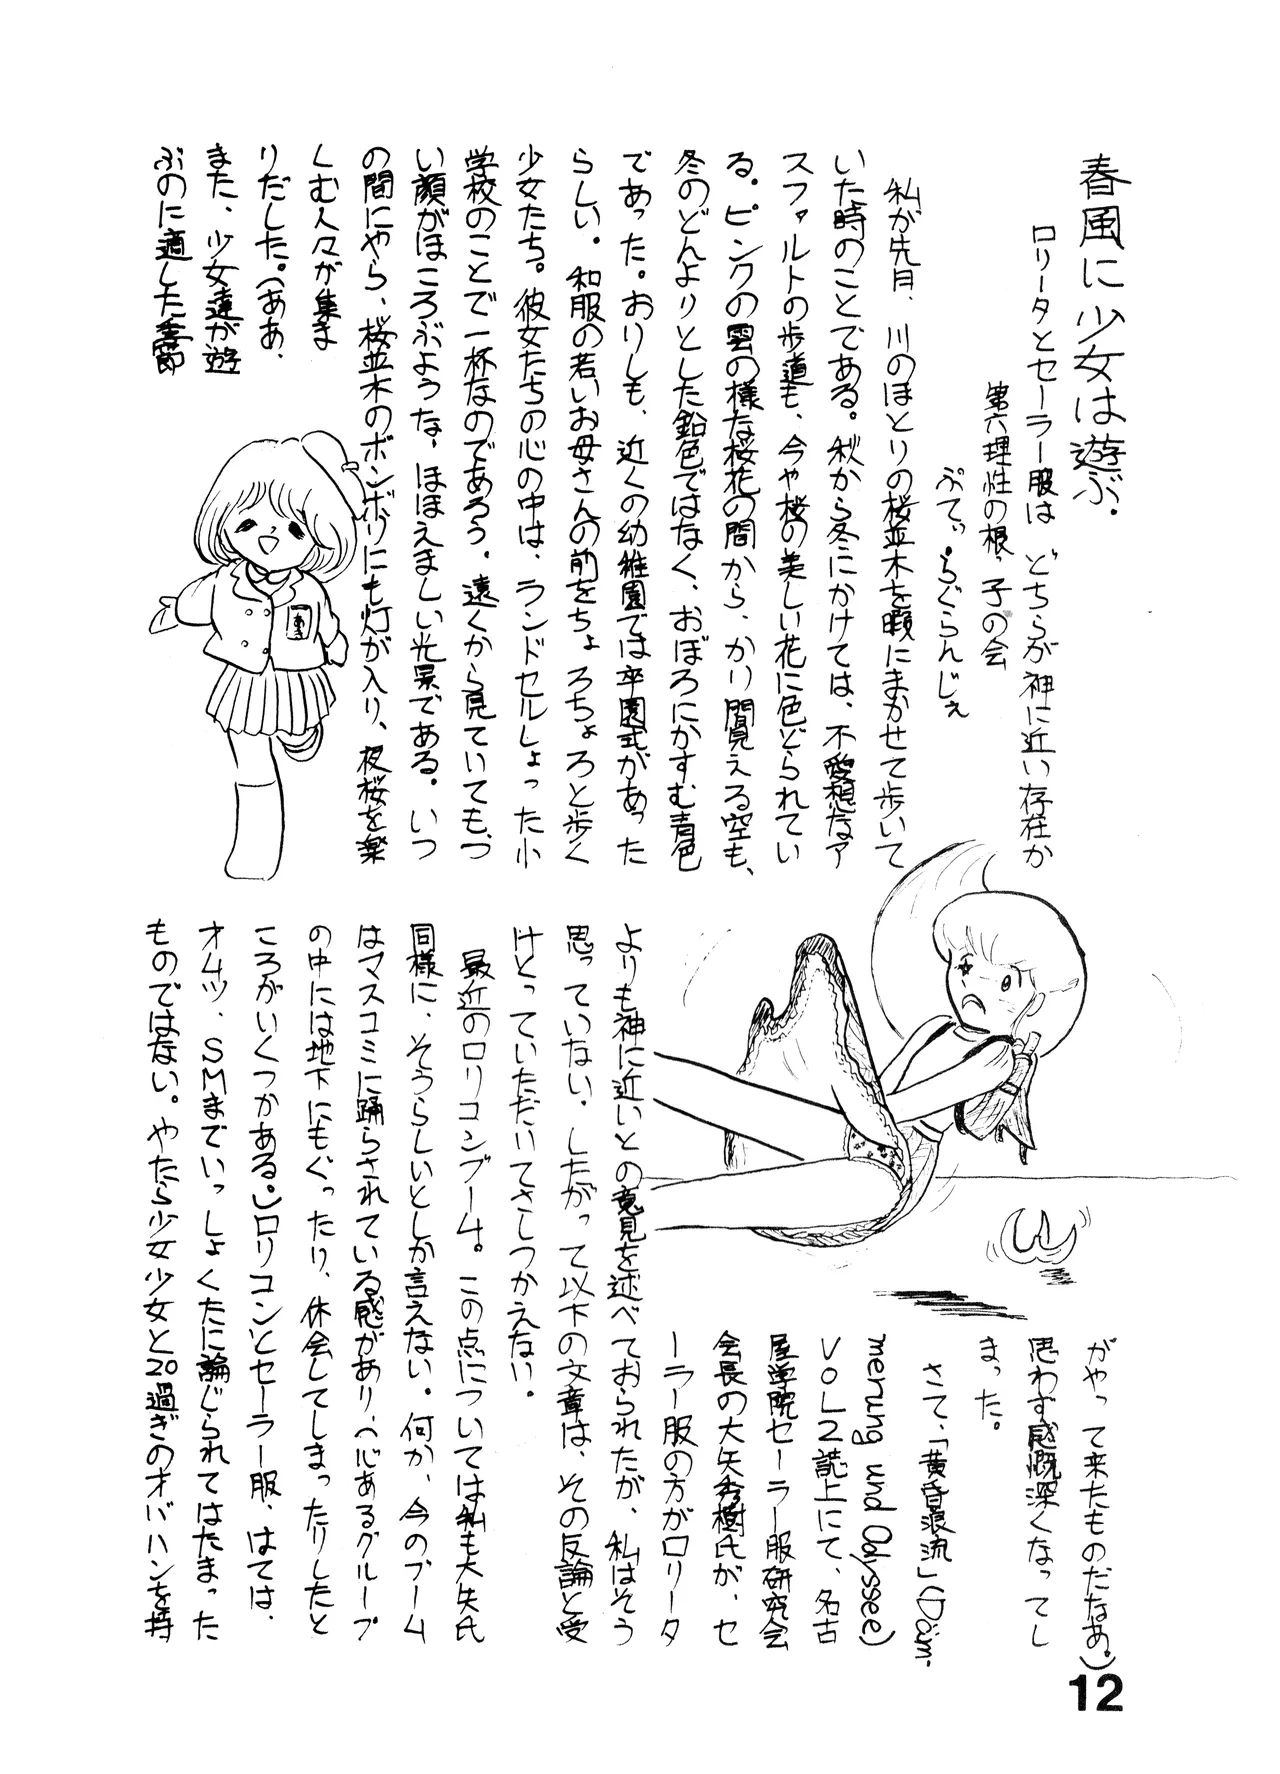 春風に少女は遊ぶ.
ロリータとセーラー服は どちらが神に近い存在か
第六理性の根っ子の会
ぷてぃ・らぐらんじぇ
私が先月、川のほとりの桜並木を暇にまかせて歩いて
いた時のことである。秋から冬にかけては、不愛想なア
スファルトの歩道も、今や桜の美しい花に色どられてい
る。ピンクの雲の様な桜花の間から、かい間見える空も、
冬のどんよりとした鉛色ではなく、おぼろにかすむ青色
であった。おりしも、近くの幼稚園では卒園式があった
らしい。和服の若いお母さんの前をちょろちょろと歩く
少女たち。彼女たちの心の中は、ランドセルしょった小
学校のことで一杯なのであろう。遠くから見ていても、つ
い顔がほころぶような、ほほえましい光景である。いつ
の間にやら、桜並木のボンボリにも灯が入り、夜桜を楽
しむ人々が集ま
りだした。(ああ、
また、少女達が遊
ぶのに適した季節
あき
がやって来たものだなあ。)
思わず感慨深くなってし
まった。
さて、「黄昏浪流」(Däm-
merung und Odyssee)
VOL2誌上にて、名古
屋学院セーラー服研究会
会長の大矢秀樹氏が、セ
ーラー服の方がロリータ
よりも神に近いとの意見を述べておられたが、私はそう
思っていない。したがって以下の文章は、その反論と受
けとっていただいてさしつかえない。
最近のロリコンブーム。この点については私も大矢氏
同様に、そうらしいとしか言えない。何か、今のブーム
はマスコミに踊らされている感があり、心あるグループ
の中には地下にもぐったり、休会してしまったりしたと
ころがいくつかある。)ロリコンとセーラー服、はては、
オムツ、SMまでいっしょくたに論じられてはたまった
ものではない。やたら少女少女と20過ぎのオバハンを持
12